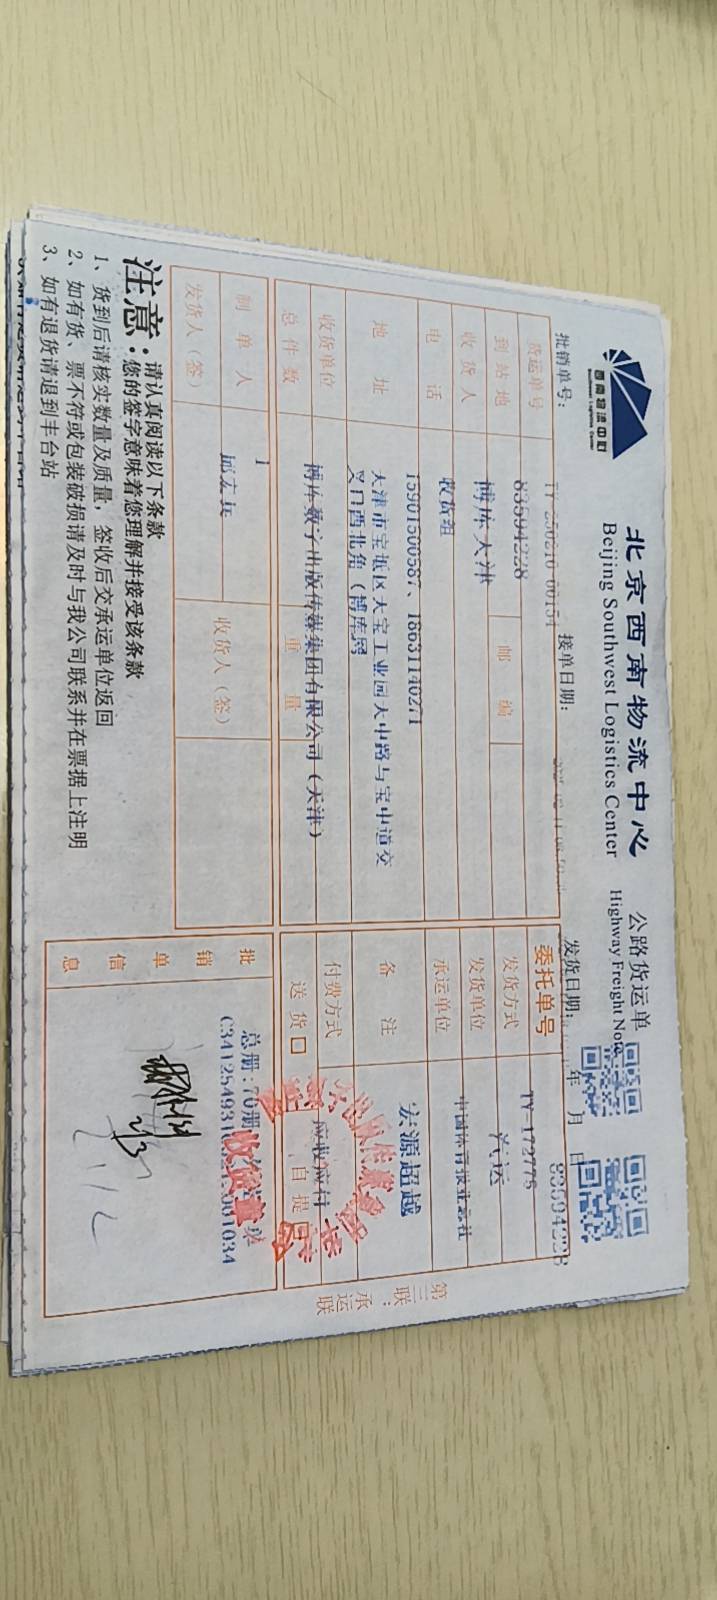 西南物流中心
Southwest Logistics Center
北京西南物流中心
Beijing Southwest Logistics Center
公路货运单
Highway Freight Note
年 月 日
83594228
批销单号：
TY-250210-00154
接单日期：
发货日期：
货运单号
83594228
委托单号
TY-172778
到站地
博库天津
邮 编
发货方式
汽运
收货人
收货组
发货单位
电 话
15901500587、18631140271
承运单位
宏源超越
地 址
天津市宝坻区大宝工业园天中路与宝中道交
叉口西北角（博库网
备 注
收货单位
博库数字出版传媒集团有限公司（天津）
付费方式
应收应付
总件数
1
重 量
送 货 □
自 提 □
制 单 人
发货人（签）
收货人（签）
批销单信息
总册:70册
收货章
第三联：承运联
注意：
请认真阅读以下条款
您的签字意味着您理解并接受该条款
1、货到后请核实数量及质量，签收后交承运单位返回
2、如有货、票不符或包装破损请及时与我公司联系并在票据上注明
3、如有退货请退到丰台站